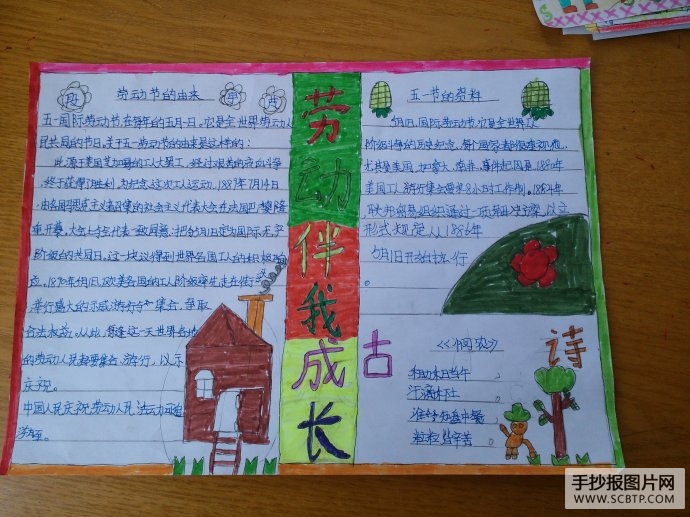 劳动节的由来
五一国际劳动节,在每年的五月一日,它是全世界劳动人
民共同的节日,关于五一劳动节的由来是这样的:
此源于美国芝加哥的工人大罢工,经过艰苦的流血斗争
终于获得了胜利,为纪念这次工人运动,1889年7月14日
由各国马思克主义者召集的社会主义代表大会在法国巴黎隆
重开幕,大会上与会代表一致同意:把5月1日定为国际无产
阶级的共同日,这一决议得到世界各国工人的积极响
应,1890年5月1日,欧美各国的工人阶级率先走在街
举行盛大的示威游行与集会,争取
合法权益。从此,每逢这一天世界各地
的劳动人民都要集会、游行,以示
庆祝。
中国人民庆祝劳动人民
劳动伴我成长
五一节的资料
5月1日,国际劳动节,它是世界工人
阶级斗争的历史纪念,每个国家都很重视他,
尤其是美国、加拿大、南非,事件起因是,1880年
美国工人游行集会要求8小时工作制。1884年,
联邦贸易组织通过一项
形式规定从1886年
5月1日开始执行
。
古诗
《悯农》
锄禾日当午
汗滴禾下土
谁知盘中餐
粒粒皆辛苦
手抄报图片网
WWW.SCBTP.COM